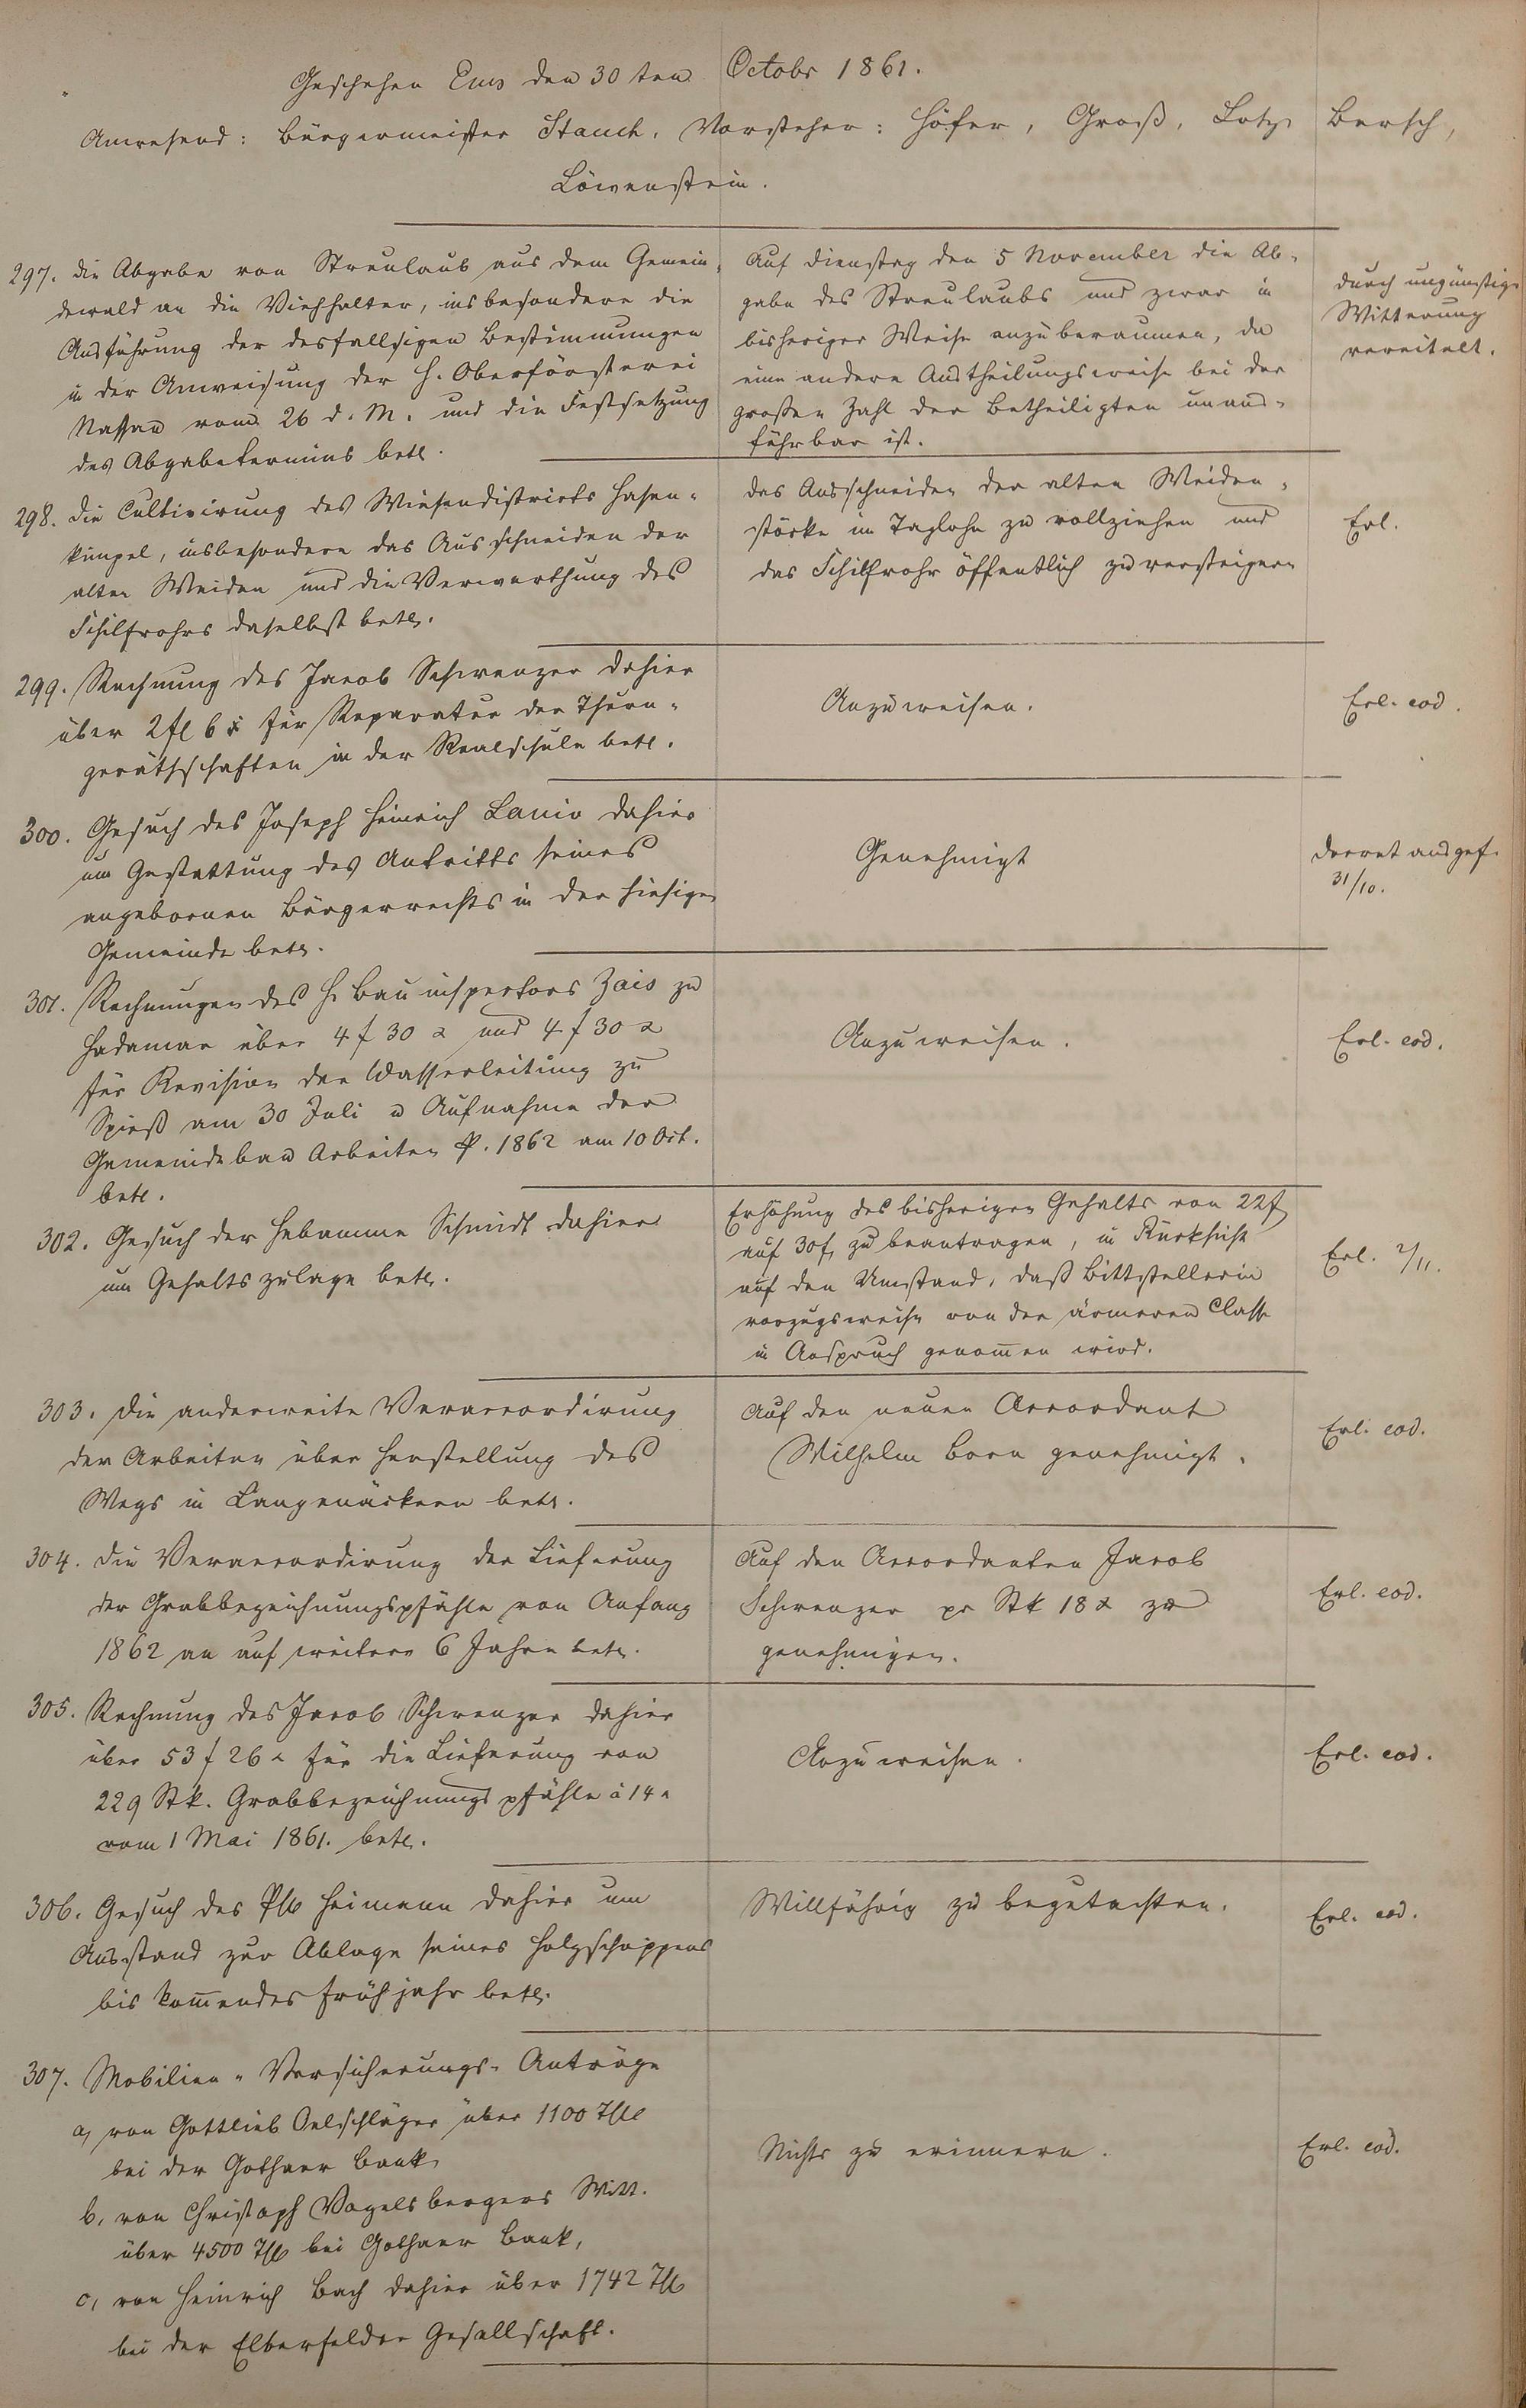 Geschehen Ems den 30ten Octobr 1861.
Anwesend: Bürgermeister Stauch, Vorsteher: Höfer, Groß, Lotz, Bersch,
Löwenstein.
297. Die Abgabe von Streulaub aus dem Gemein-
dewald an die Viehhalter, insbesondere die
Ausführung der desfallsigen Bestimmungen
in der Anweisung der H. Oberförsterei
Nassau vom 26 d. M. und die Festsetzung
des Abgabetermins betr.
Auf Dienstag den 5 November die Ab-
gabe des Streulaubs und zwar in
bisheriger Weise anzuberaumen, da
eine andere Austheilungsweise bei der
großen Zahl der Betheiligten unaus-
führbar ist.
durch ungünstige
Witterung
vereitelt.
298. Die Cultivirung des Wiesendistricts Hasen-
kümpel, insbesondere das Ausschneiden der
alten Weiden und die Verwerthung des
Schilfrohrs daselbst betr.
Das Ausschneiden der alten Weiden-
stöcke im Taglohn zu vollziehen und
das Schilfrohr öffentlich zu versteigern
Erl.
299. Rechnung des Jacob Schwenzer dahier
über 2 fl 6 x für Reparatur der Thurn-
geräthschaften in der Realschule betr.
Anzuweisen.
Erl. eod.
300. Gesuch des Joseph Heinrich Lanio dahier
um Gestattung des Antritts seines
angebornen Bürgerrechts in der hiesigen
Gemeinde betr.
Genehmigt
Decret ausgef.
31/10.
301. Rechnungen des H. Bauinspectors Zais zu
Hadamar über 4 f 30 x und 4 f 30 x
für Revision der Wasserleitung zu
Spieß am 30 Juli u Aufnahme der
Gemeindebau Arbeiten p. 1862 am 10 Oct.
betr.
Anzuweisen.
Erl. eod.
302. Gesuch der Hebamme Schmidt dahier
um Gehaltszulage betr.
Erhöhung des bisherigen Gehalts von 22 f
auf 30 f, zu beantragen, in Rücksicht
auf den Umstand, daß Bittstellerin
vorzugsweise von der ärmeren Classe
in Anspruch genommen wird.
Erl. 2/11.
303. Die anderweite Veraccordirung
der Arbeiten über Herstellung des
Wegs in Langenäckern betr.
Auf den neuen Accordant
Wilhelm Born genehmigt.
Erl. eod.
304. Die Veraccordirung der Lieferung
der Grabbezeichnungspfähle von Anfang
1862 an auf weitere 6 Jahre betr.
Auf den Accordanten Jacob
Schwenzer pr Stk 18 x zu
genehmigen.
Erl. eod.
305. Rechnung des Jacob Schwenzer dahier
über 53 f 26 x für die Lieferung von
229 Stk. Grabbezeichnungspfähle à 14 x
vom 1 Mai 1861. betr.
Anzuweisen.
Erl. eod.
306. Gesuch des Heimann dahier um
Ausstand zur Ablage seines Holzschoppens
bis kommendes Frühjahr betr.
Willfährig zu begutachten.
Erl. eod.
307. Mobilien-Versicherungs-Anträge
a, von Gottlieb Oelschläger über 1100 Thlr
bei der Gothaer Bank,
b, von Christoph Vogelsbergers Witt.
über 4500 Thlr bei Gothaer Bank,
c, von Heinrich Bach dahier über 1742 Thlr
bei der Elberfelder Gesellschaft.
Nichts zu erinnern.
Erl. eod.